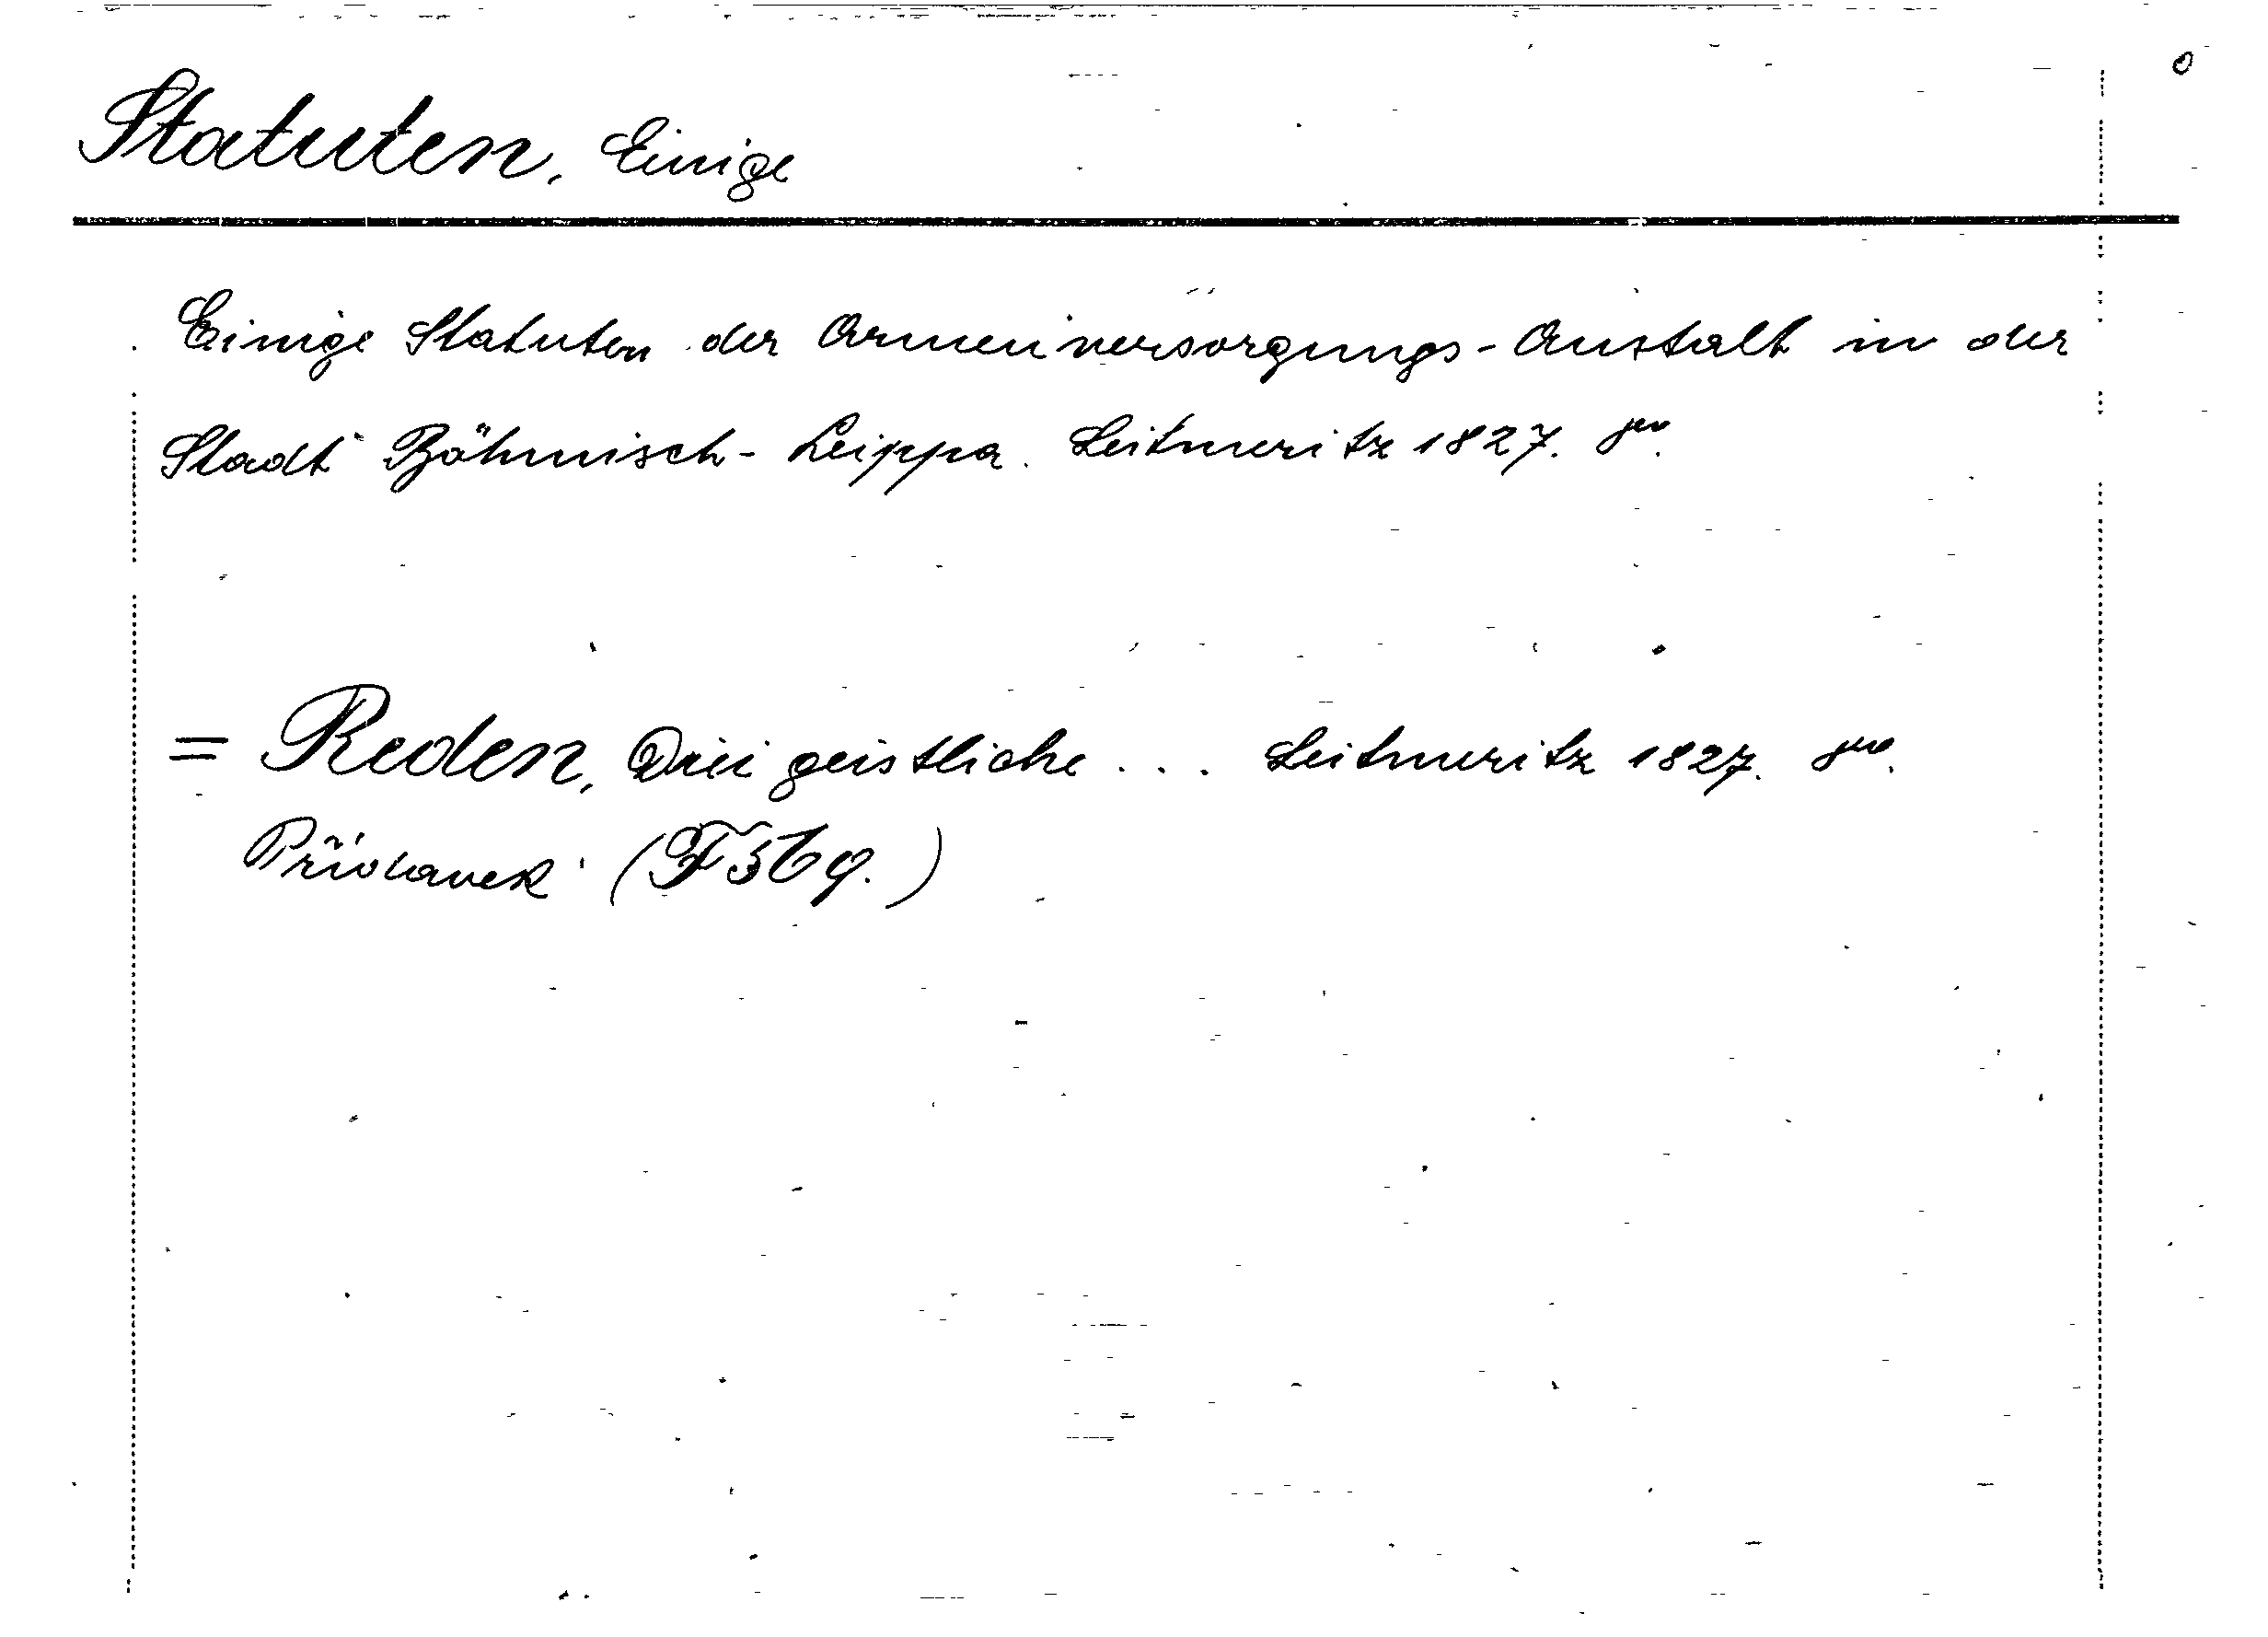 Statuten, Einige
Einige Statuten der Armenversorgungs-Anstalt in der
Stadt Böhmisch-Leippa. Leitmeritz 1827. 8vo.
= Reden, Drei geistliche ... Leitmeritz 1827. 8vo.
Přívlavek